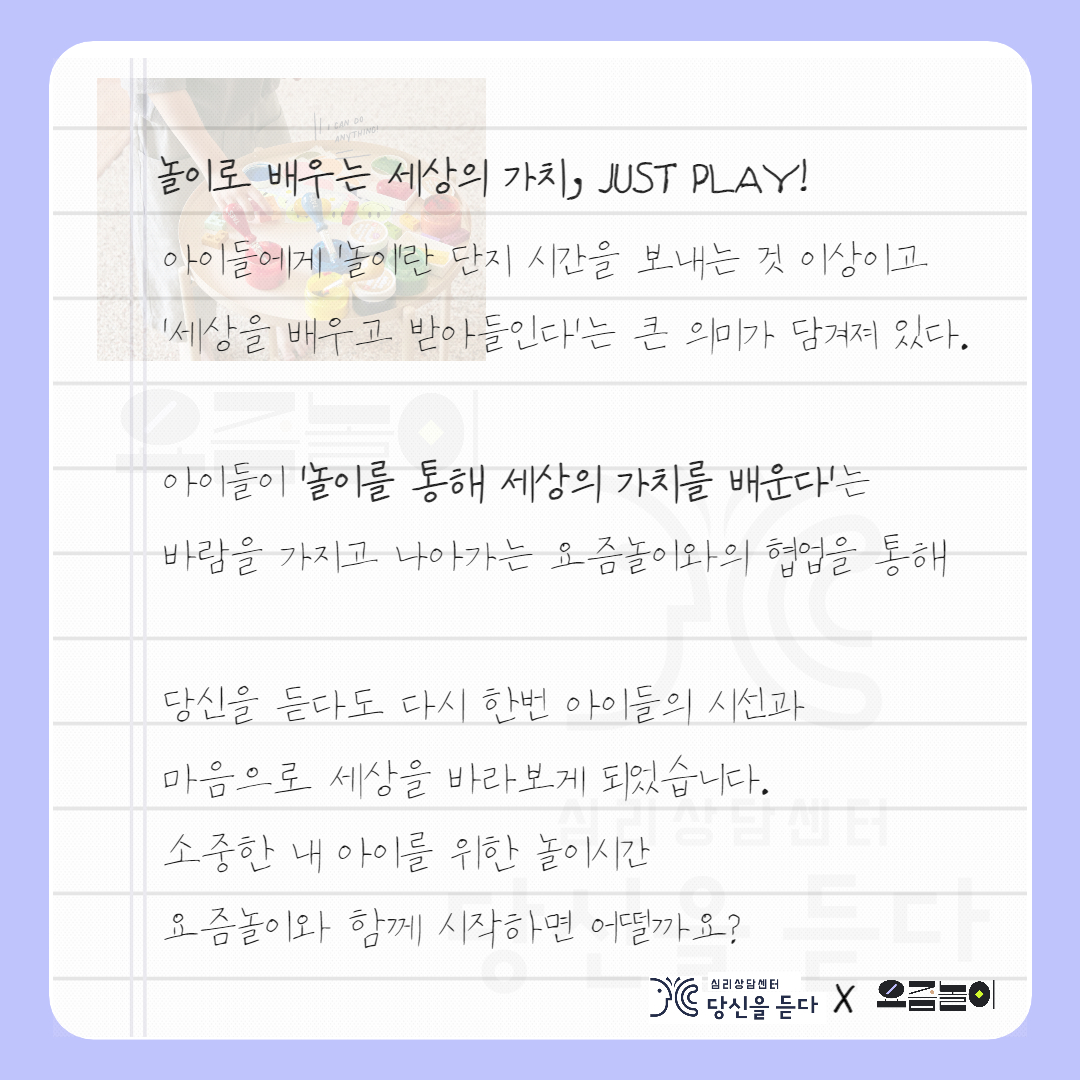 I CAN DO
ANYTHING!
놀이로 배우는 세상의 가치, JUST PLAY!
아이들에게 '놀이'란 단지 시간을 보내는 것 이상이고
'세상을 배우고 받아들인다'는 큰 의미가 담겨져 있다.
요즘놀이
아이들이 '놀이를 통해 세상의 가치를 배운다'는
바람을 가지고 나아가는 요즘놀이와의 협업을 통해
당신을 듣다도 다시 한번 아이들의 시선과
마음으로 세상을 바라보게 되었습니다.
심리상담센터
소중한 내 아이를 위한 놀이시간
당신을 듣다
요즘놀이와 함께 시작하면 어떨까요?
심리상담센터
당신을 듣다 X 요즘놀이